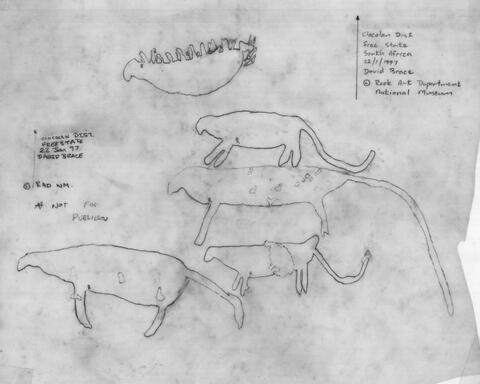 Clocolan Dist
Free State
South Africa
22/1/1997
David Brace
© Rock Art Department
National Museum
CLOCOLAN DIST.
FREE STATE
22 Jan 97.
DAVID BRACE
© RAD NM.
NOT FOR